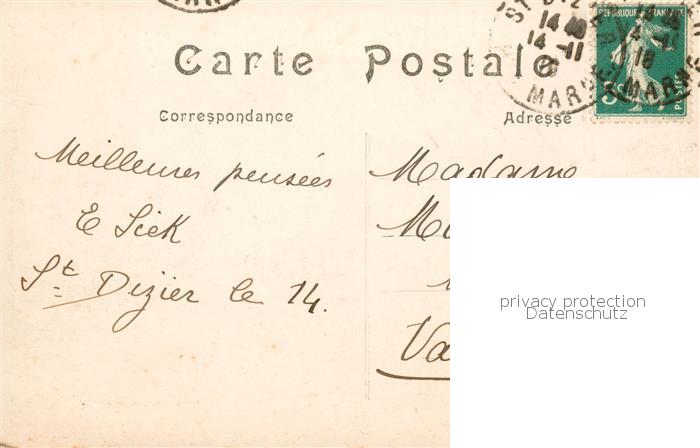 Carte Postale
Correspondance
Adresse
RÉPUBLIQUE FRANÇAISE
POSTES
14-11
MARNE
Meilleures pensées
E Sick
St Dizier le 14.
Madame
privacy protection
Datenschutz